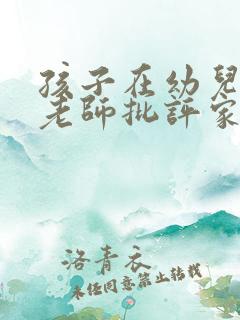 孩子在幼兒
老師批評家
洛青衣
未经同意禁止转载